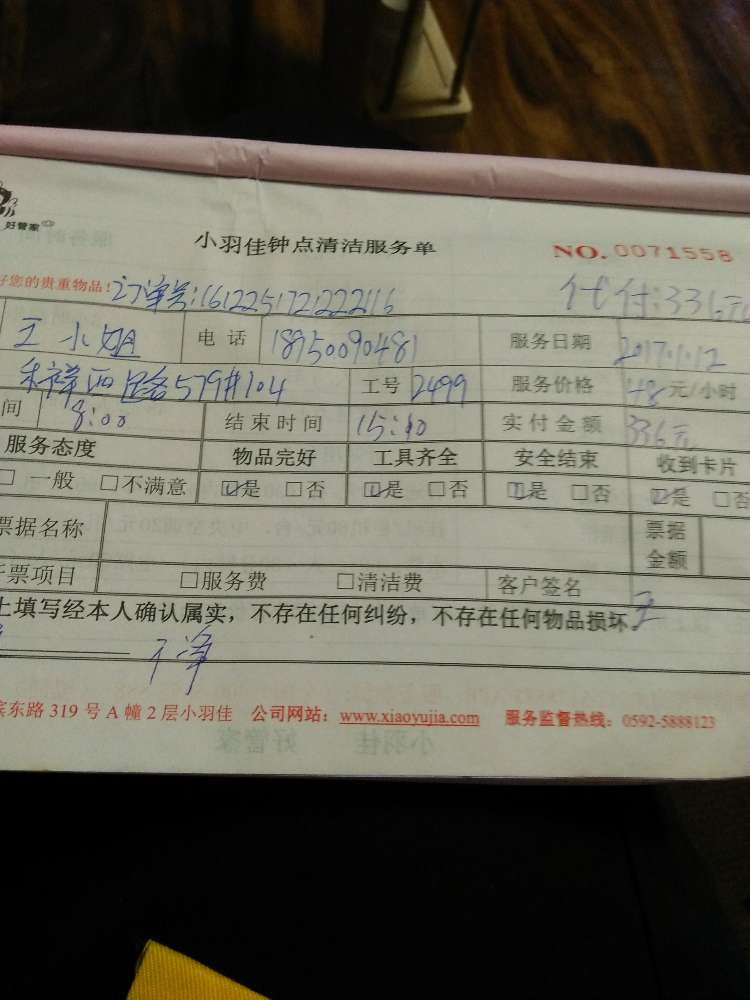 好管家
小羽佳钟点清洁服务单 NO. 0071558
好您的贵重物品! 订单号:161225172122216 代付:336元
王小姐 电话 18950090481 服务日期 2017.1.12
祥西路579#104 工号 2499 服务价格 48元/小时
间 8:00 结束时间 15:10 实付金额 336元
服务态度 物品完好 工具齐全 安全结束 收到卡片
□一般 □不满意 ☑是 □否 ☑是 □否 ☑是 □否 ☑是 □否
票据名称 票据金额
票项目 □服务费 □清洁费 客户签名
上填写经本人确认属实，不存在任何纠纷，不存在任何物品损坏 王
东路 319 号 A 幢 2 层小羽佳 公司网站：www.xiaoyujia.com 服务监督热线：0592-5888123